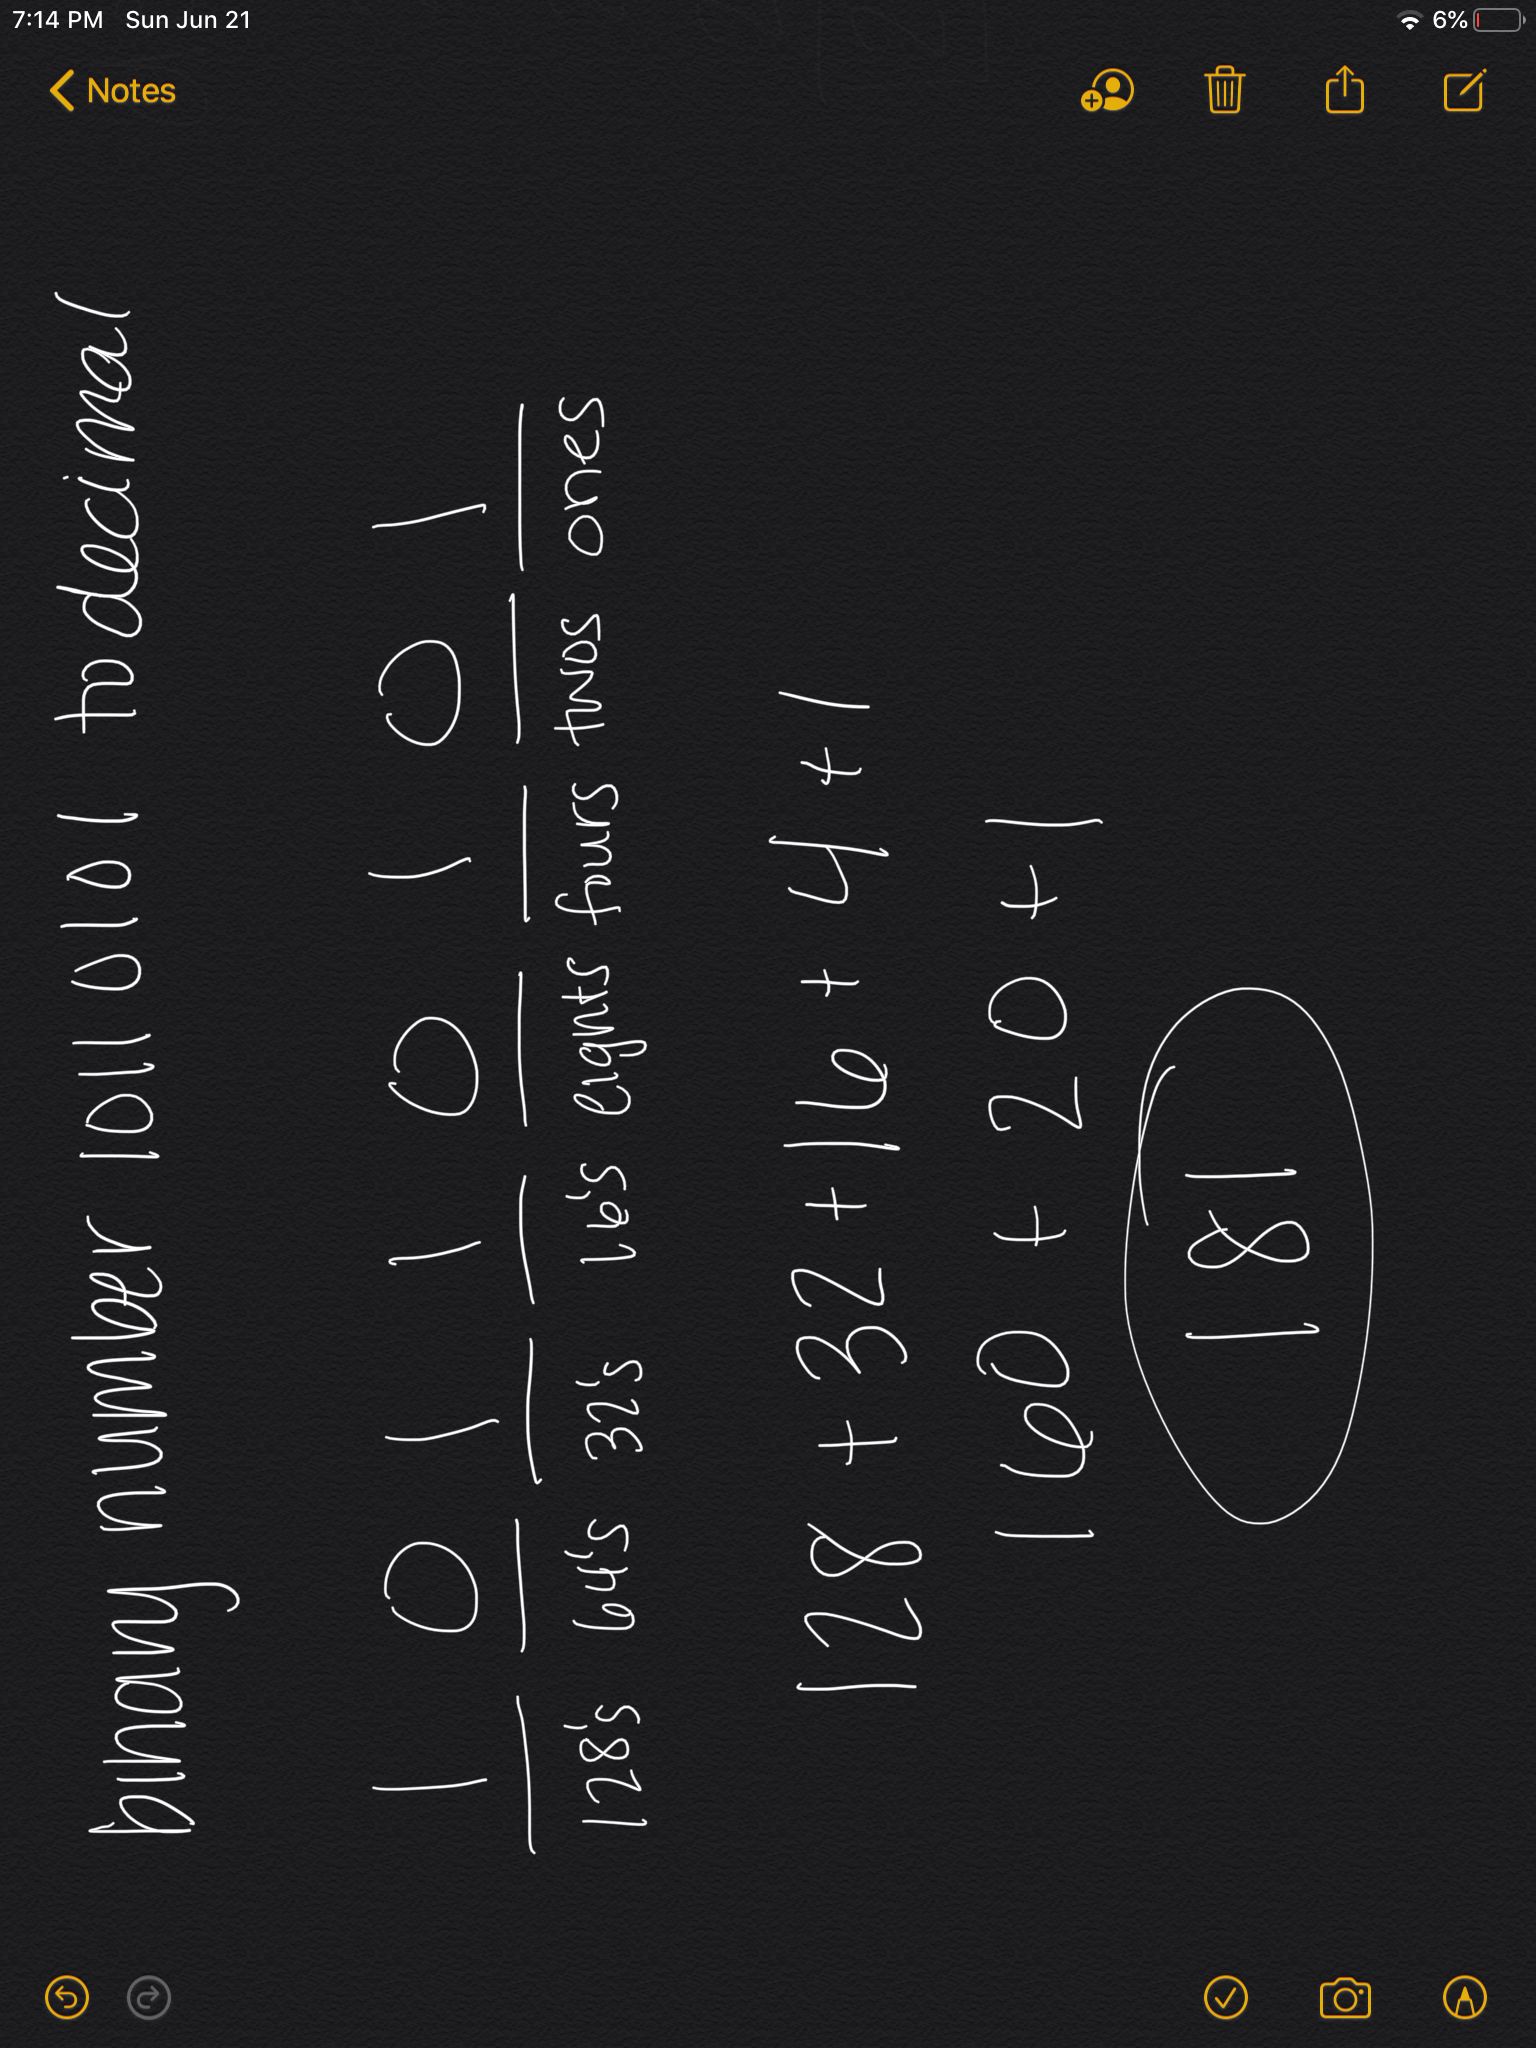 7:14 PM Sun Jun 21
6%
Notes
binary number 1011 0101 to decimal
1 0 1 1 0 1 0 1
128's 64's 32's 16's eights fours twos ones
128 + 32 + 16 + 4 + 1
160 + 20 + 1
181